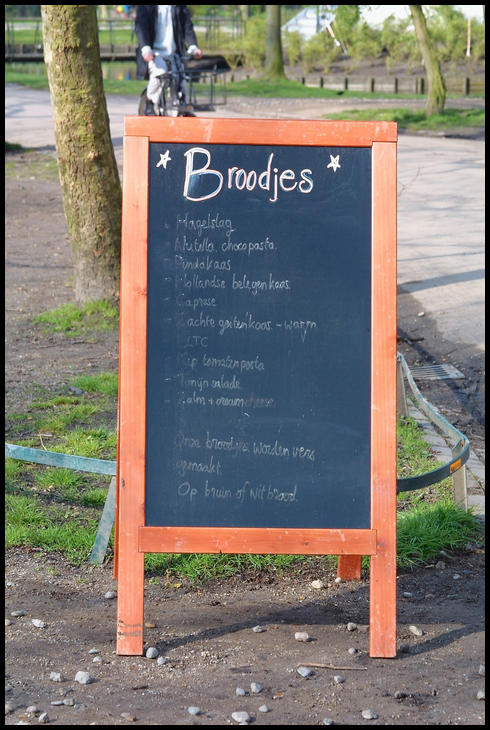 Broodjes
- Hagelslag
- Nutella, chocopasta.
- Pindakaas
- Hollandse belegenkaas.
- Caprese
- Zachte geitenkaas. - warm
- LTC
- Kip tomatenpasta
- Tonijn salade
- Zalm + creamcheese.
Onze broodjes worden vers
gemaakt.
Op bruin of wit brood.